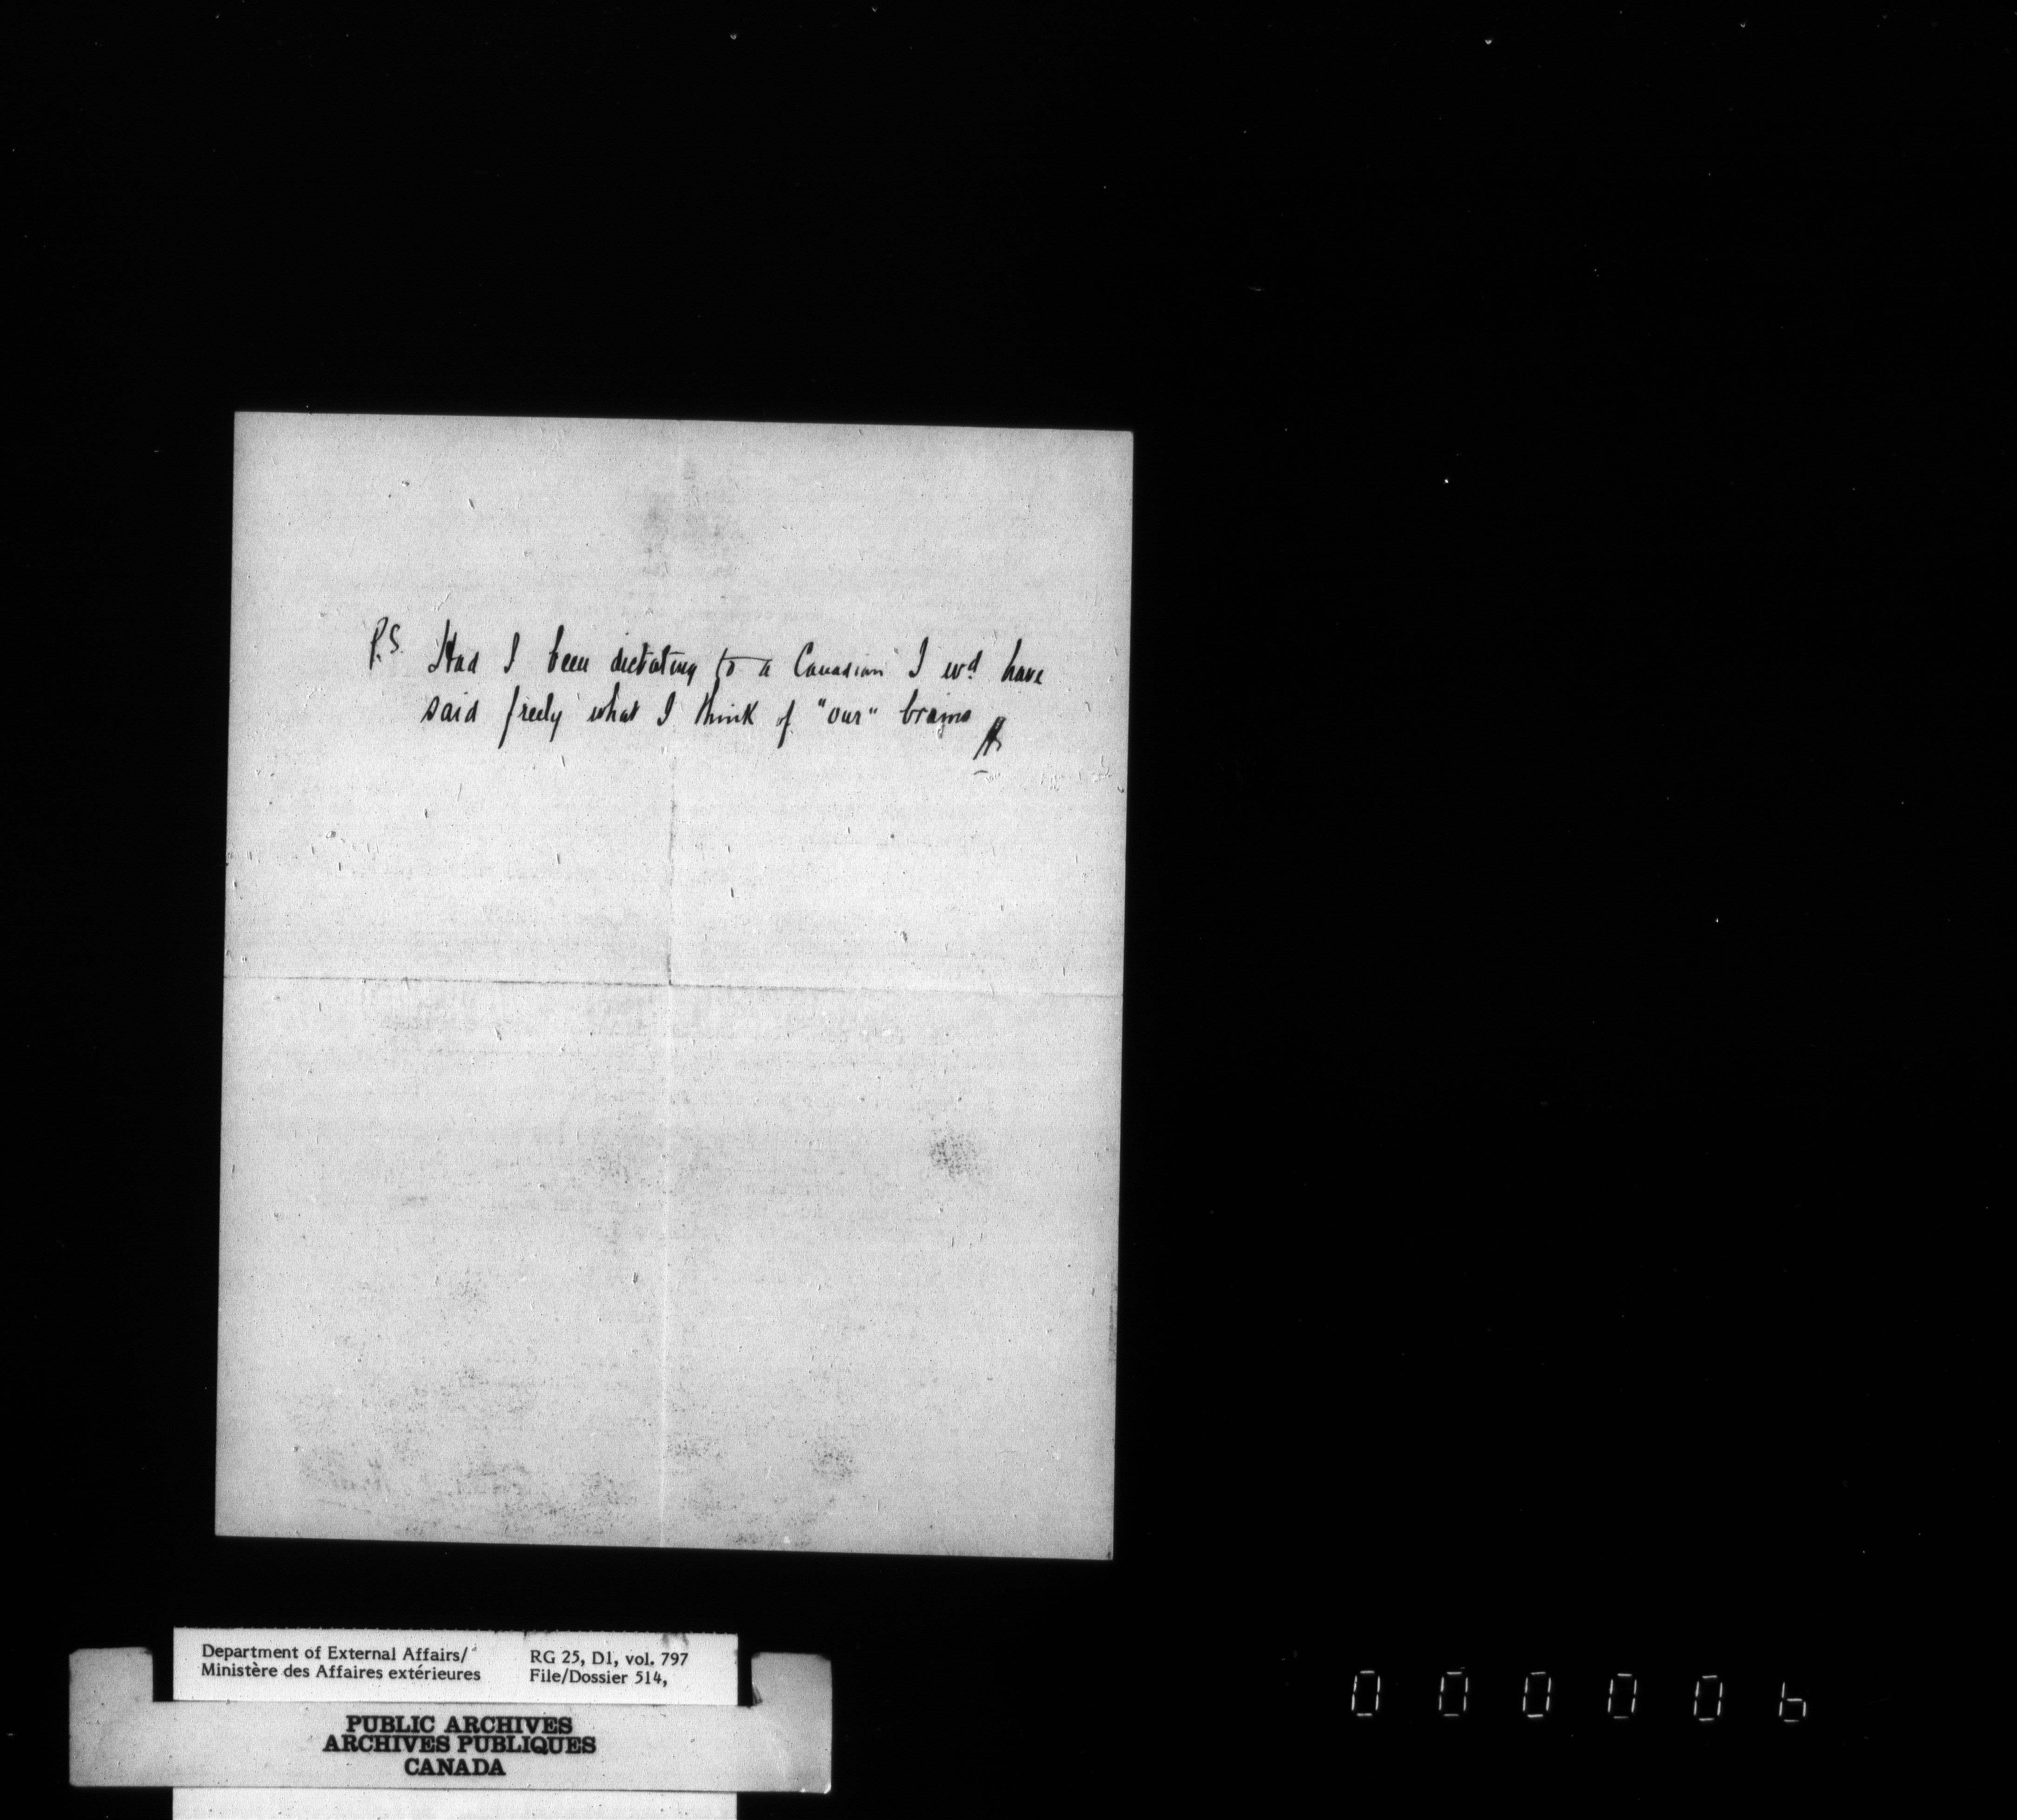 P.S. Had I been dictating to a Canadian I wd. have
said freely what I think of "our" brains
Department of External Affairs/
Ministère des Affaires extérieures
RG 25, D1, vol. 797
File/Dossier 514,
PUBLIC ARCHIVES
ARCHIVES PUBLIQUES
CANADA
000006